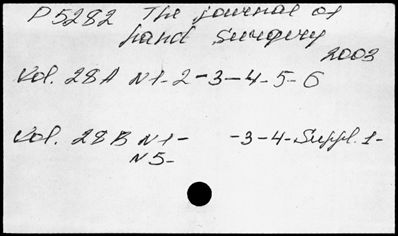 P5282 The journal of
hand surgery
2003
Vol. 28A N1-2-3-4-5-6
Vol. 28B N1- -3-4-Suppl.1-
N5-